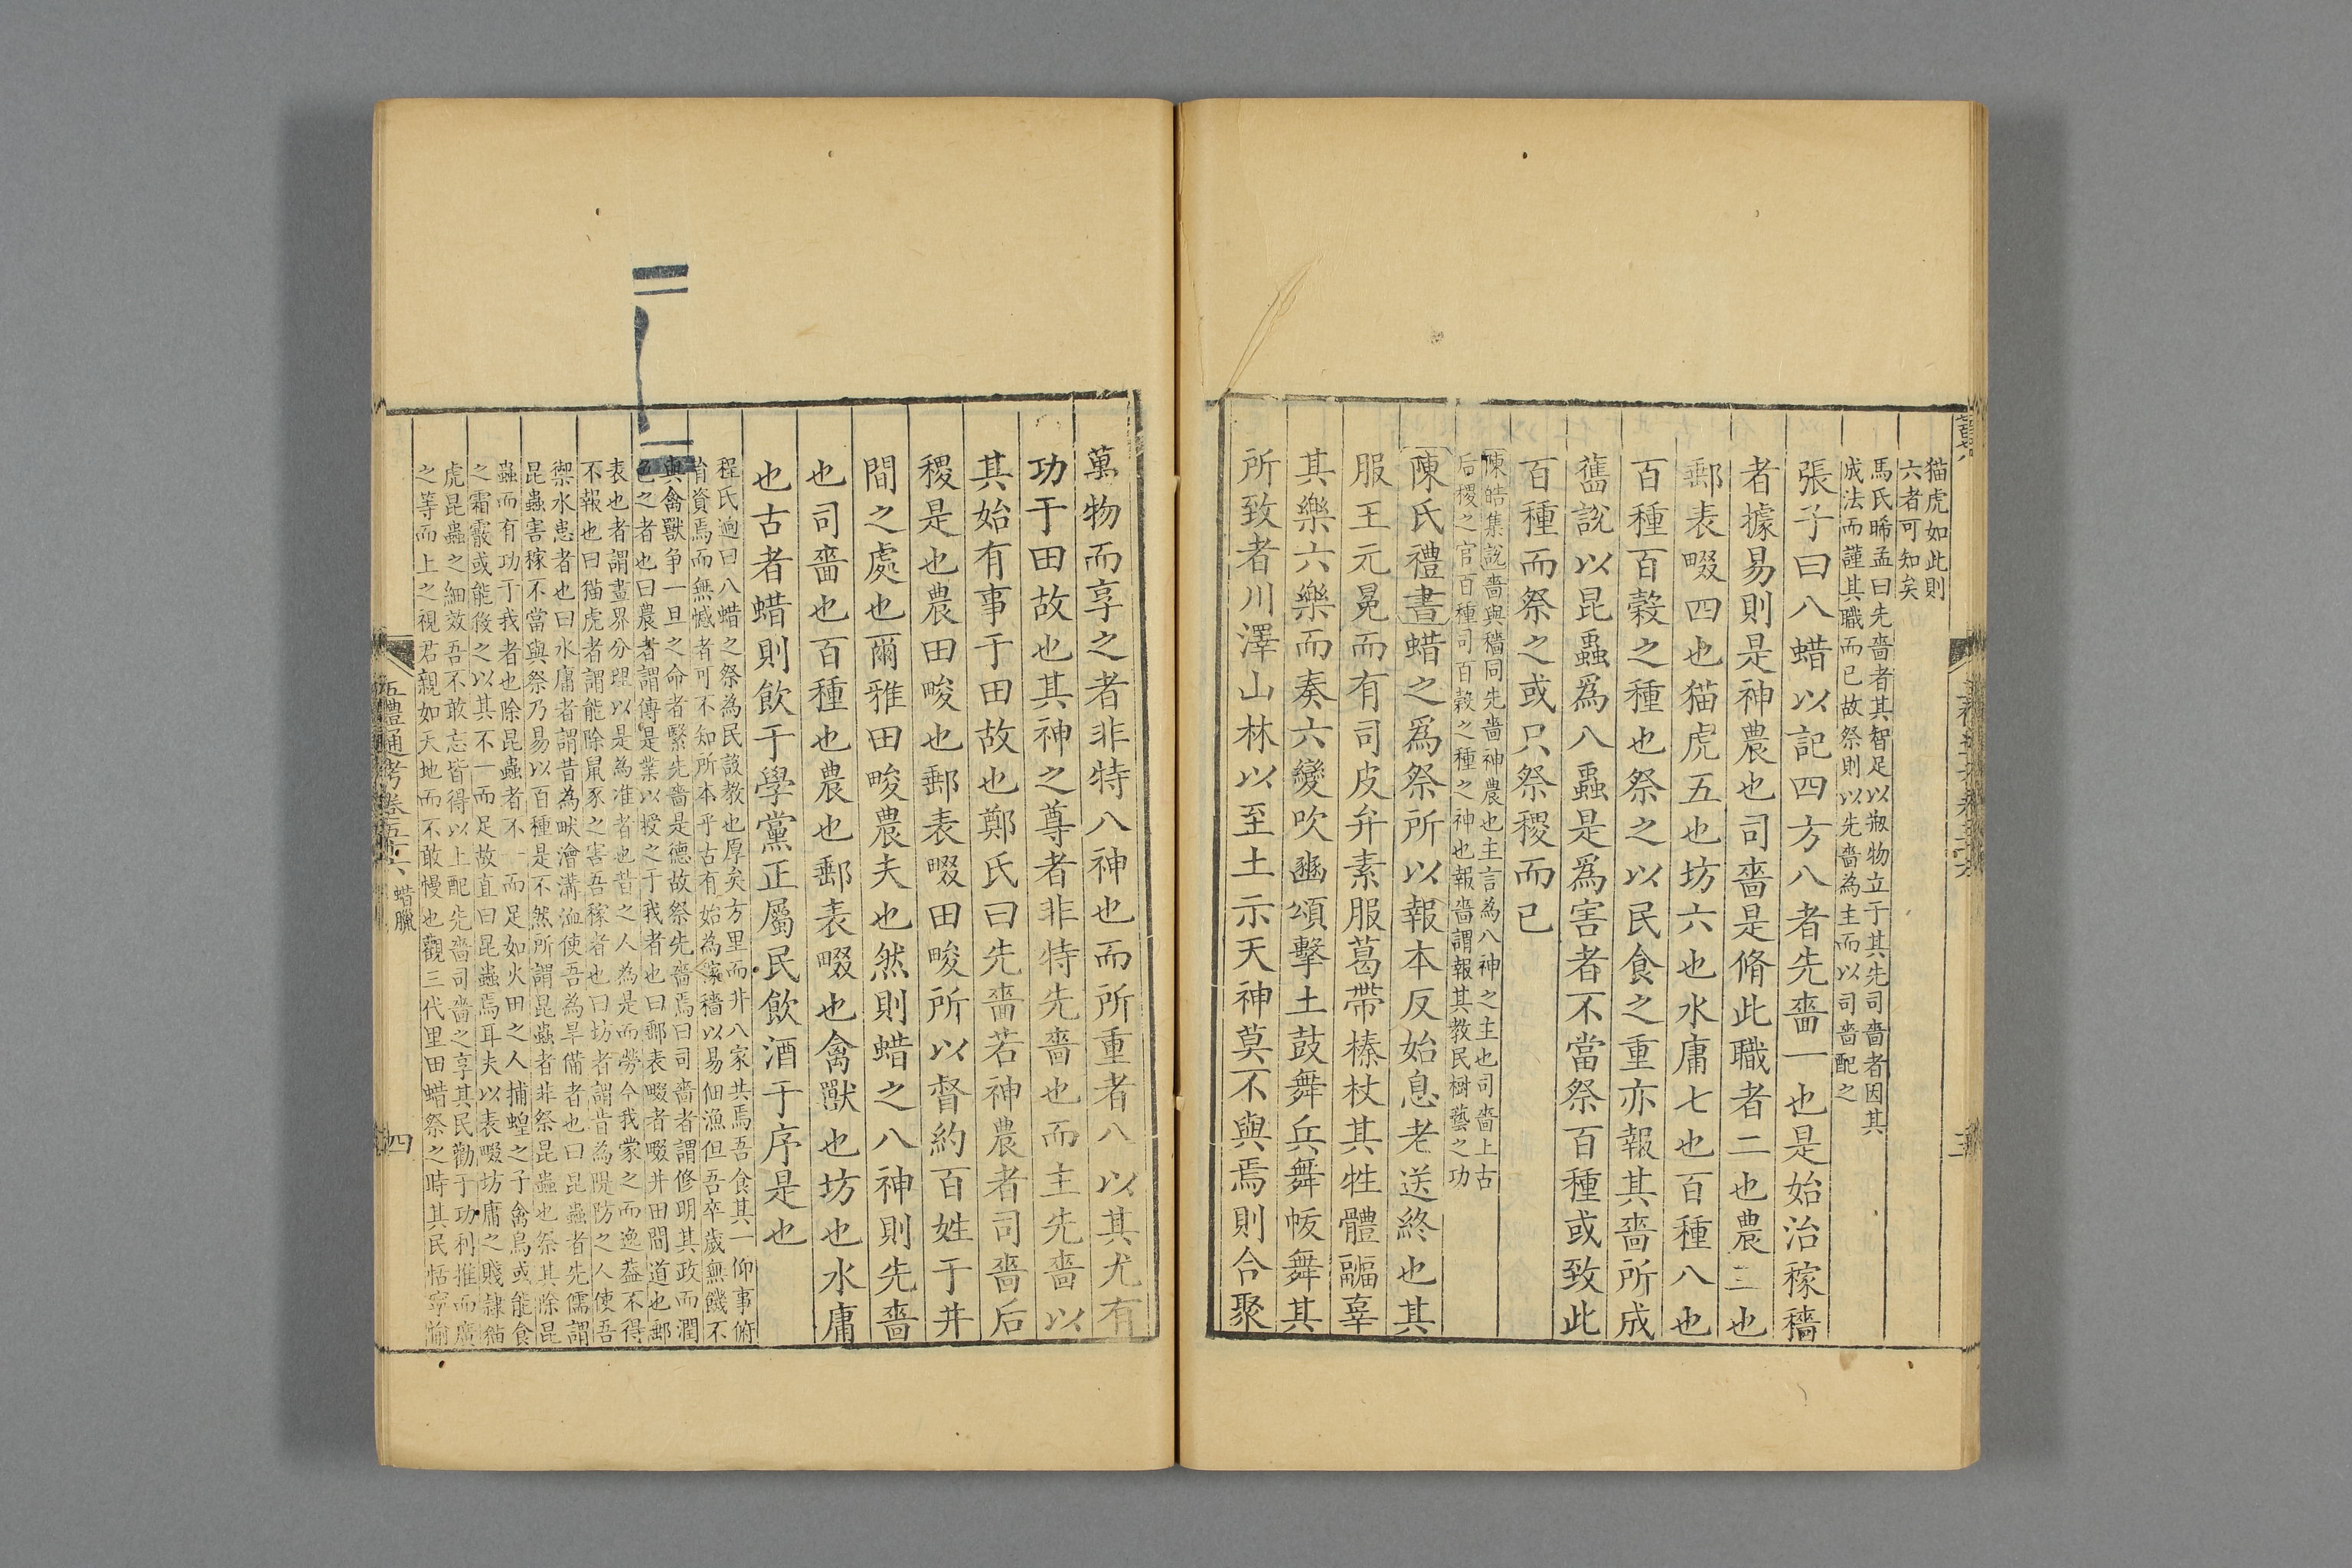 猫虎如此則
六者可知矣
馬氏睎孟曰先嗇者其智足以刱物立于其先司嗇者因其
成法而謹其職而已故祭則以先嗇為主而以司嗇配之
張子曰八蜡以記四方八者先嗇一也是始治稼穡
者據易則是神農也司嗇是脩此職者二也農三也
郵表畷四也猫虎五也坊六也水庸七也百種八也
百種百穀之種也祭之以民食之重亦報其嗇所成
舊說以昆蟲爲八蟲是爲害者不當祭百種或致此
百種而祭之或只祭稷而已
陳皓集說嗇與穡同先嗇神農也主言為八神之主也司嗇上古
后稷之官百種司百穀之種之神也報嗇謂報其教民樹藝之功
陳氏禮書蜡之爲祭所以報本反始息老送終也其
服王元冕而有司皮弁素服葛帶榛杖其牲體疈辜
其樂六樂而奏六變吹豳頌擊土鼓舞兵舞帗舞其
所致者川澤山林以至土示天神莫不與焉則合聚
萬物而享之者非特八神也而所重者八以其尤有
功于田故也其神之尊者非特先嗇也而主先嗇以
其始有事于田故也鄭氏曰先嗇若神農者司嗇后
稷是也農田畯也郵表畷田畯所以督約百姓于井
間之處也爾雅田畯農夫也然則蜡之八神則先嗇
也司嗇也百種也農也郵表畷也禽獸也坊也水庸
也古者蜡則飲于學黨正屬民飲酒于序是也
程氏迥曰八蜡之祭為民設教也厚矣方里而井八家共焉吾食其一仰事俯
育資焉而無憾者可不知所本乎古有始為稼穡以易佃漁但吾卒歲無饑不
與禽獸争一旦之命者緊先嗇是德故祭先嗇焉曰司嗇者謂修明其政而潤
色之者也曰農者謂傳是業以授之于我者也曰郵表畷者畷井田間道也郵
表也者謂畫界分理以是為准者也昔之人為是而勞今我蒙之而逸葢不得
不報也曰猫虎者謂能除鼠豕之害吾稼者也曰坊者謂昔為隄防之人使吾
禦水患者也曰水庸者謂昔為畎澮溝洫使吾為旱備者也曰昆蟲者先儒謂
昆蟲害稼不當與祭乃易以百種是不然所謂昆蟲者非祭昆蟲也祭其除昆
蟲而有功于我者也除昆蟲者不一而足如火田之人捕蝗之子禽鳥或能食
之霜霰或能殺之以其不一而足故直曰昆蟲焉耳夫以表畷坊庸之賤隷猫
虎昆蟲之細效吾不敢忘皆得以上配先嗇司嗇之享其民勸于功利推而廣
之等而上之視君親如天地而不敢慢也觀三代里田蜡祭之時其民恬寧愉
五禮通考卷五十六 蜡臘
四